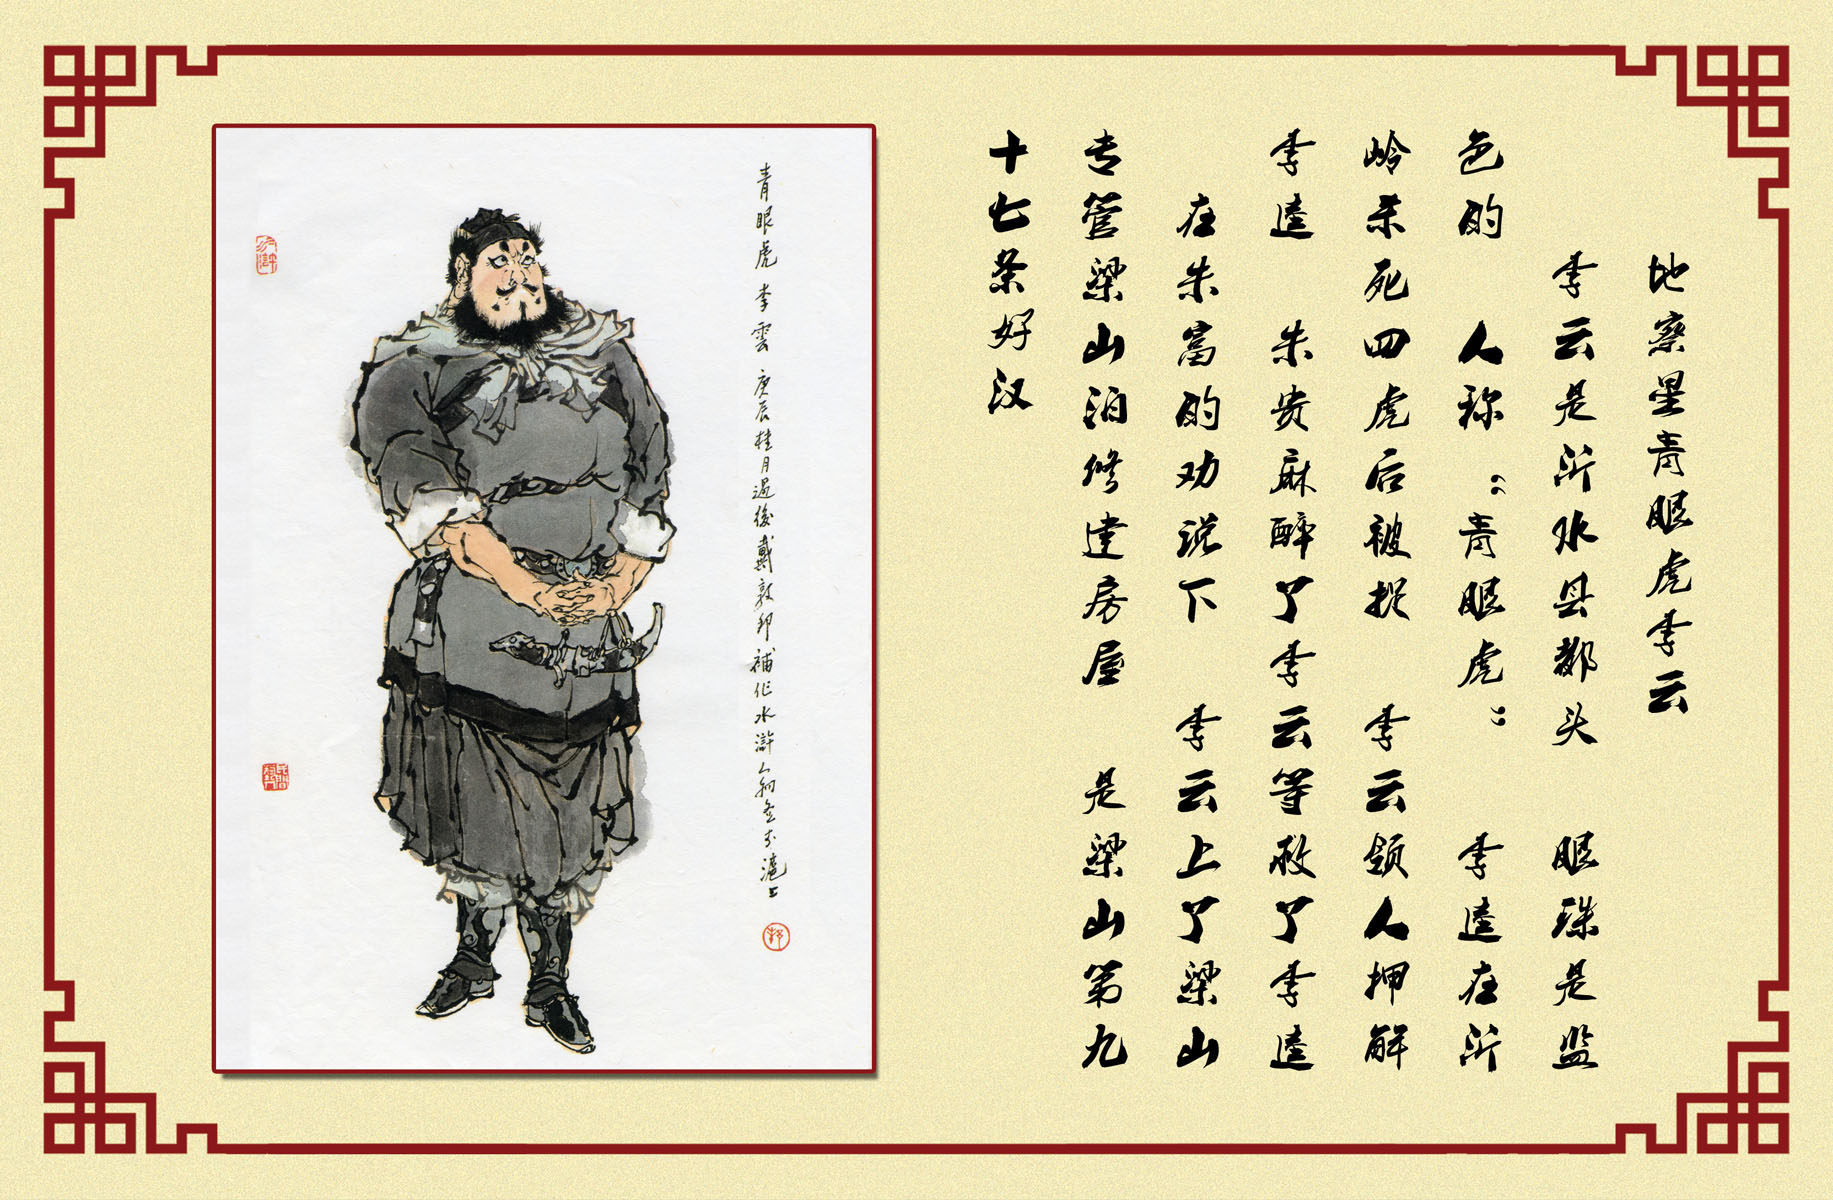 地察星青眼虎李云
李云是沂水县都头 眼珠是监
色的 人称“青眼虎” 李逵在沂
岭杀死四虎后被捉 李云领人押解
李逵 朱贵麻醉了李云等救了李逵
在朱富的劝说下 李云上了梁山
专管梁山泊修建房屋 是梁山第九
十七条好汉
青眼虎李雲 庚辰桂月過後戴敦邦補作水滸人物於滬上
水滸
邦